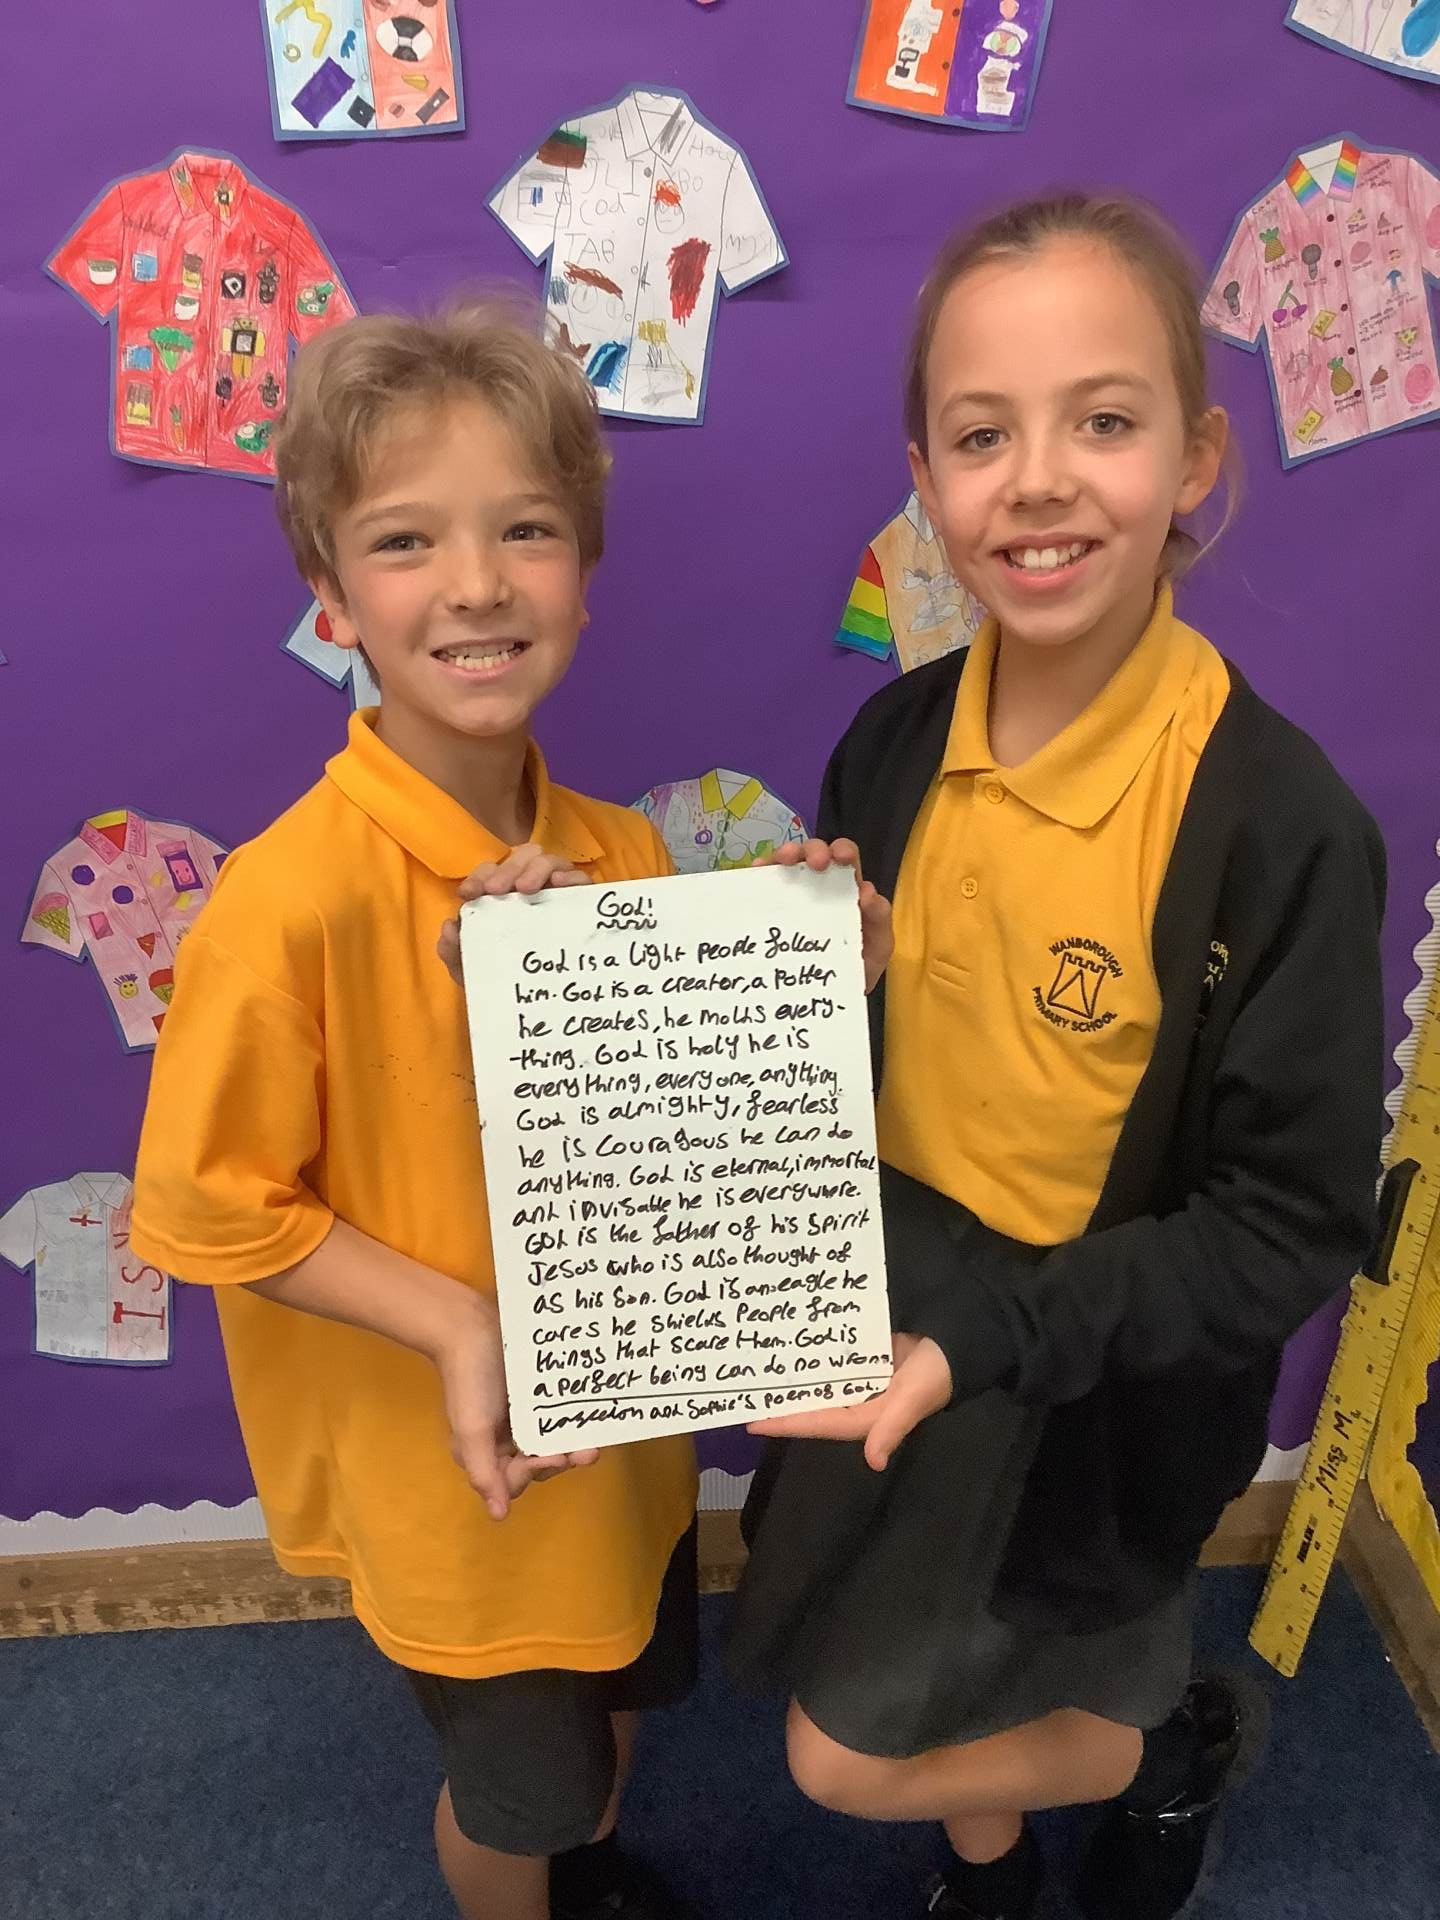 God!
God is a light people follow
him. God is a creator, a Potter
he creates, he molds every-
-thing. God is holy he is
everything, everyone, anything.
God is almighty, fearless
he is couragous he can do
anything. God is eternal, immortal
and invisable he is everywhere.
God is the father of his spirit
Jesus who is also thought of
as his son. God is an eagle he
cares he shields people from
things that scare them. God is
a perfect being can do no wrong.
and Sophie's poem of God.
WANBOROUGH
PRIMARY SCHOOL
Miss M
JLI
Cod
TAB